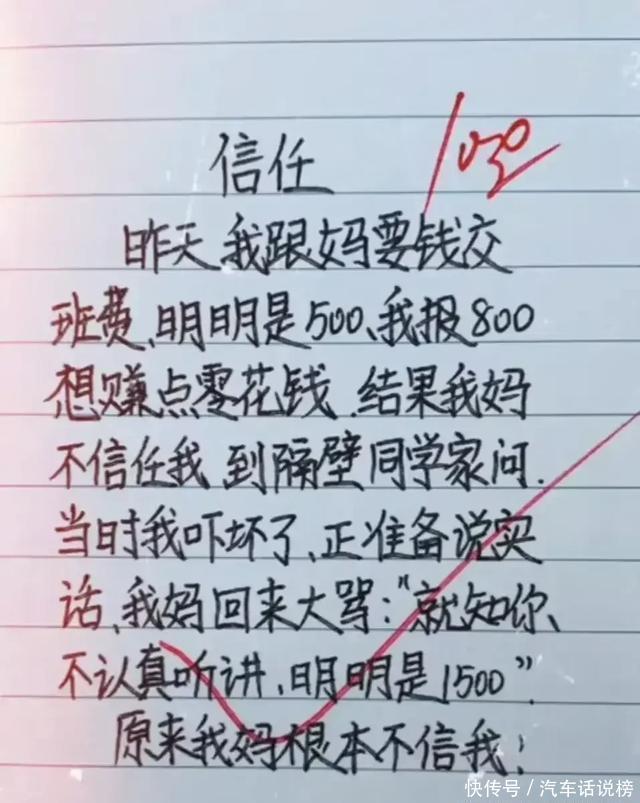 信任
昨天、我跟妈要钱交
班费、明明是500、我报800
想赚点零花钱.结果我妈
不信任我、到隔壁同学家问.
当时我吓坏了、正准备说实
话、我妈回来大骂:“就知你、
不认真听讲、明明是1500”.
原来我妈根本不信我!
快传号/汽车话说榜